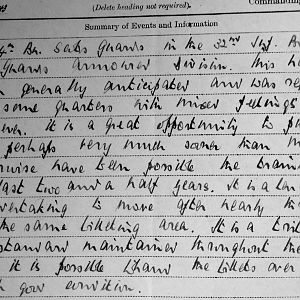 (Delete heading not required).
Commanding
Summary of Events and Information
4th Bn. Scots Guards in the 32nd Inf. B
Guards Armoured Division. This ha
n generally anticipated and was re
some quarters with mixed feelings
ever. it is a great opportunity to p
perhaps very much sooner than m
rwise have been possible the traini
last two and a half years. It is a
ertaking to move after nearly th
the same billeting area. It is a
standard maintained throughout the
it is possible the billets over
good condition.